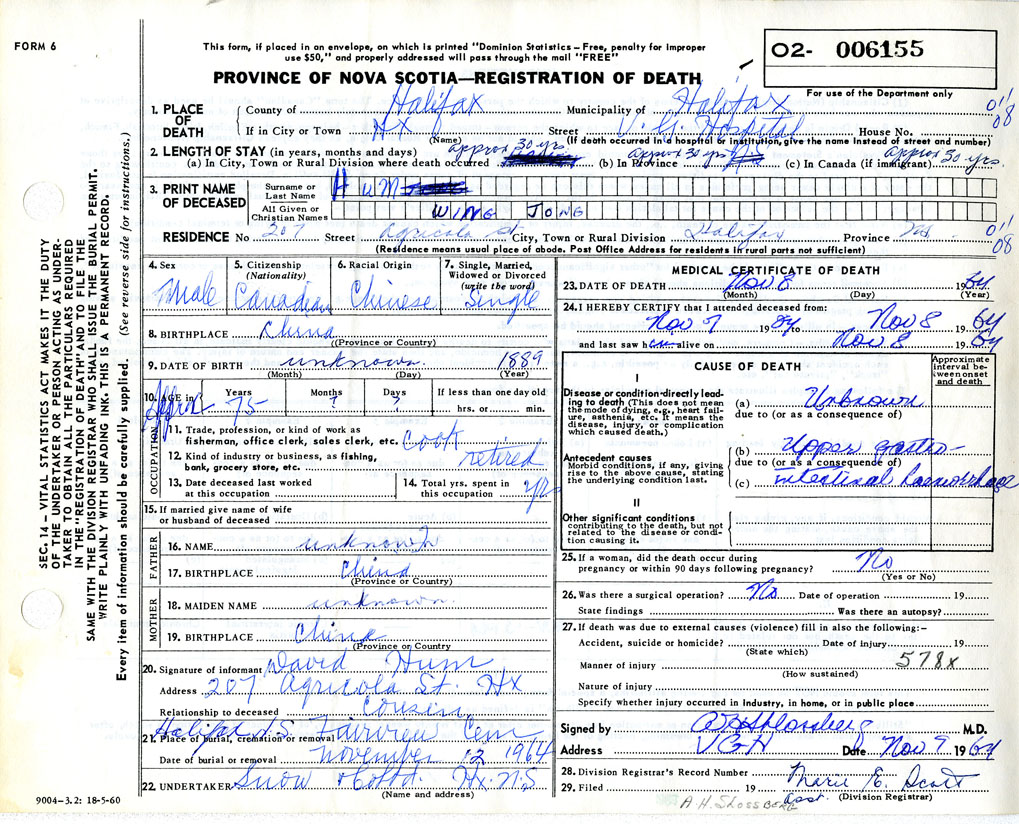 FORM 6
This form, if placed in an envelope, on which is printed "Dominion Statistics – Free, penalty for improper
use $50," and properly addressed will pass through the mail "FREE"
O2- 006155
For use of the Department only
PROVINCE OF NOVA SCOTIA—REGISTRATION OF DEATH
1. PLACE OF DEATH
County of Halifax Municipality of Halifax 01
If in City or Town Hx Street V.G. Hospital House No. 08
(Name) (If death occurred in a hospital or institution, give the name instead of street and number)
2. LENGTH OF STAY (in years, months and days)
(a) In City, Town or Rural Division where death occurred approx 30 yrs (b) In Province approx 30 yrs (c) In Canada (if immigrant) approx 30 yrs
3. PRINT NAME OF DECEASED
Surname or Last Name HUM
All Given or Christian Names WING JONG
RESIDENCE No 207 Street Agricola St City, Town or Rural Division Halifax Province 01 08
(Residence means usual place of abode. Post Office Address for residents in rural parts not sufficient)
4. Sex Male
5. Citizenship (Nationality) Canadian
6. Racial Origin Chinese
7. Single, Married, Widowed or Divorced (write the word) Single
8. BIRTHPLACE China
(Province or Country)
9. DATE OF BIRTH unknown 1889
(Month) (Day) (Year)
10. AGE in Approx Years 75 Months ? Days ? If less than one day old hrs. or min.
OCCUPATION
11. Trade, profession, or kind of work as fisherman, office clerk, sales clerk, etc. cook
12. Kind of industry or business, as fishing, bank, grocery store, etc. retired
13. Date deceased last worked at this occupation
14. Total yrs. spent in this occupation yrs
15. If married give name of wife or husband of deceased
FATHER
16. NAME unknown
17. BIRTHPLACE China
(Province or Country)
MOTHER
18. MAIDEN NAME unknown
19. BIRTHPLACE China
(Province or Country
20. Signature of informant David Hum
Address 207 Agricola St. Hx
Relationship to deceased cousin
21. Place of burial, cremation or removal Halifax N.S. Fairview Cem
Date of burial or removal November 12 1964
22. UNDERTAKER Snow Hx. N.S
(Name and address)
MEDICAL CERTIFICATE OF DEATH
23. DATE OF DEATH Nov 8 1964
(Month) (Day) (Year)
24. I HEREBY CERTIFY that I attended deceased from:
Nov 7 1964 to Nov 8 1964
and last saw him alive on Nov 8 1964
CAUSE OF DEATH
Approximate interval between onset and death
I
Disease or condition directly leading to death (This does not mean the mode of dying, e.g., heart failure, asthenia, etc. It means the disease, injury, or complication which caused death.)
(a) Unknown
due to (or as a consequence of)
Antecedent causes
Morbid conditions, if any, giving rise to the above cause, stating the underlying condition last.
(b) Upper gastro-
due to (or as a consequence of)
(c) intestinal haemorrhage
II
Other significant conditions contributing to the death, but not related to the disease or condition causing it.
25. If a woman, did the death occur during pregnancy or within 90 days following pregnancy? No
(Yes or No)
26. Was there a surgical operation? No Date of operation 19
State findings Was there an autopsy?
27. If death was due to external causes (violence) fill in also the following:–
Accident, suicide or homicide? Date of injury 19
(State which)
Manner of injury 578x
(How sustained)
Nature of injury
Specify whether injury occurred in industry, in home, or in public place
Signed by M.D.
Address VGH Date Nov 9 1964
28. Division Registrar's Record Number
29. Filed 19 Marie E. Scott
asst. (Division Registrar)
A.H. SLOSSBERG
9004–3.2: 18-5-60
SEC. 14 – VITAL STATISTICS ACT MAKES IT THE DUTY
OF THE UNDERTAKER OR PERSON ACTING AS UNDER-
TAKER TO OBTAIN ALL THE PARTICULARS REQUIRED
IN THE "REGISTRATION OF DEATH" AND TO FILE THE
SAME WITH THE DIVISION REGISTRAR WHO SHALL ISSUE THE BURIAL PERMIT.
WRITE PLAINLY WITH UNFADING INK. THIS IS A PERMANENT RECORD.
Every item of information should be carefully supplied. (See reverse side for instructions.)